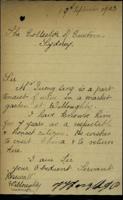 1903
The Collector of Customs
Sydney.
Sir
Mr
is a part
owner in a market
garden at Willoughby
I have known him
for 4 years as a respectable
& honest citizen. He wishes
to visit China & to return
here.
I am Sir
Your Obedient Servant
Willoughby